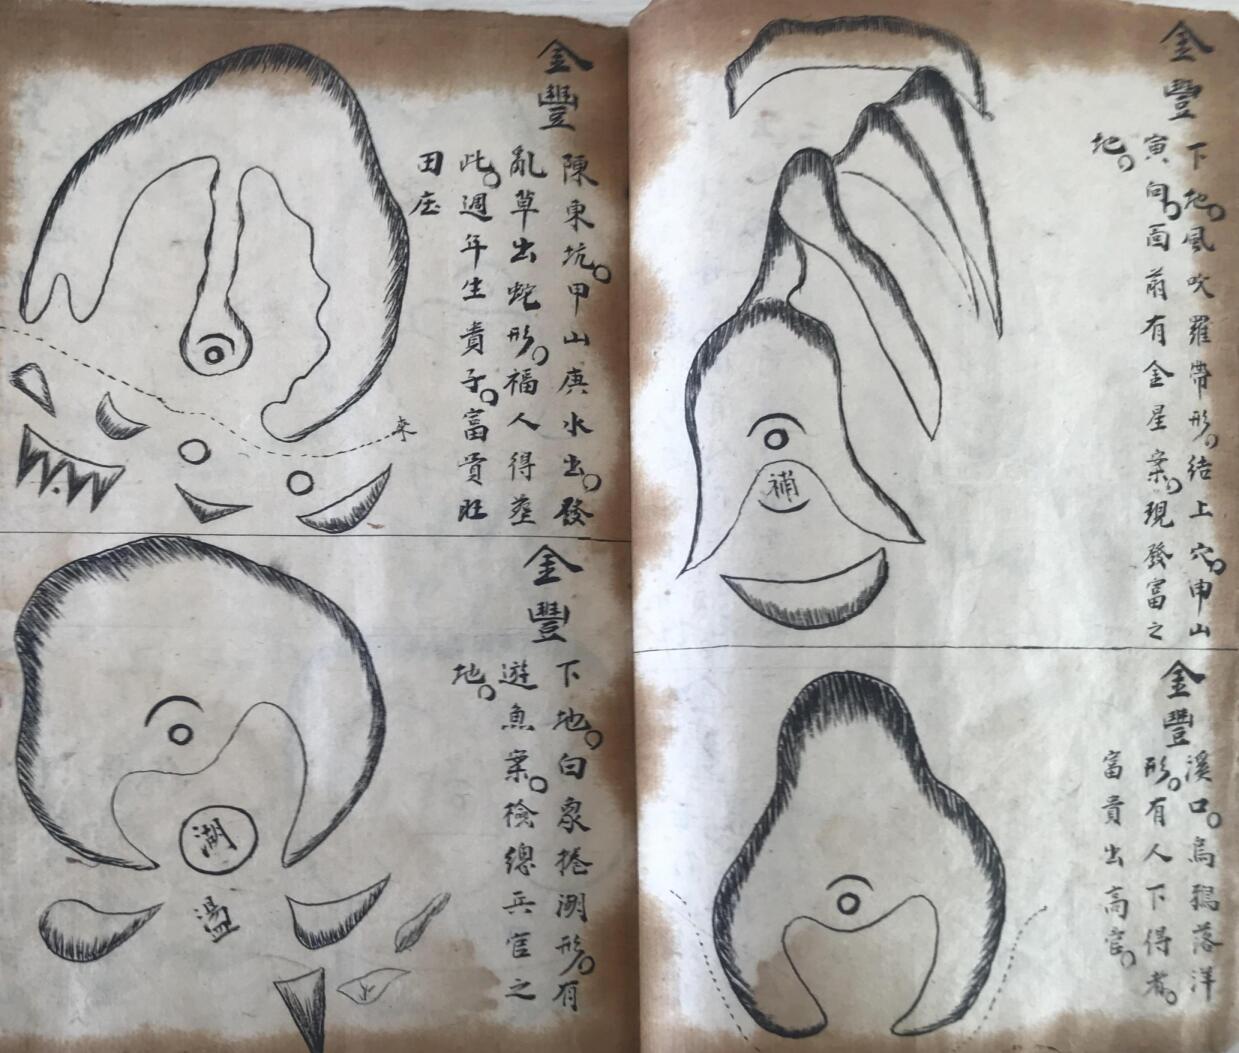 金豐
下地。風吹羅帶形。結上穴。申山
寅向。面前有金星案。現發富之
地。
補
金豐
溪口。烏鴉落洋
形。有人下得者。
富貴出高官。
金豐
陳東坑。甲山庚水出。發
亂草出蛇形。福人得塟
此。週年生貴子。富貴旺
田庄
來
金豐
下地。白象捲湖形。有
遊魚案。檢總兵官之
地。
湖